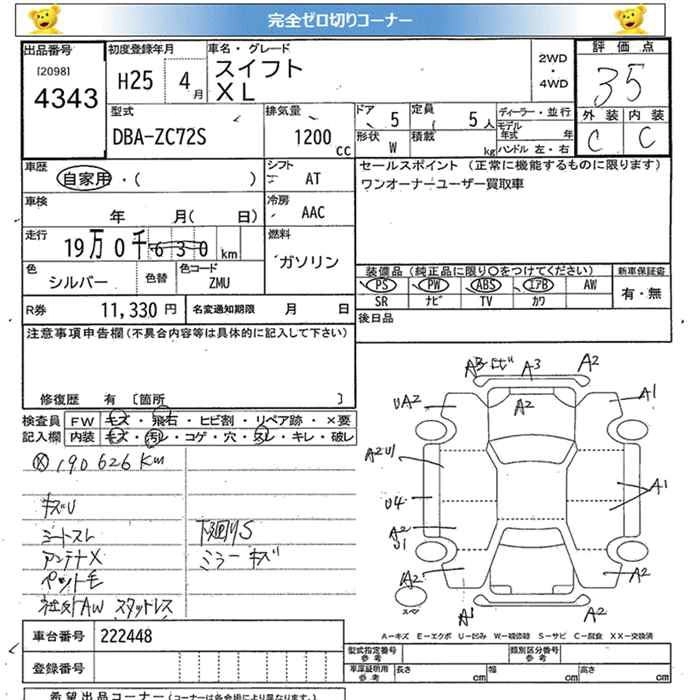 完全ゼロ切りコーナー
出品番号 初度登録年月 車名・グレード 2WD・4WD 評価点
[2098] 4343 H25 4月 スイフト XL 35
外装 内装
C C
型式 排気量 ドア 定員 ディーラー・並行
DBA-ZC72S 1200cc 5 5人 モデル年式 年
形状 積載
W kg ハンドル 左・右
車歴 シフト セールスポイント (正常に機能するものに限ります)
自家用・( ) AT ワンオーナーユーザー買取車
車検 年 月( 日) 冷房 AAC
走行 19万0千630km 燃料 ガソリン
色 シルバー 色替 色コード ZMU
装備品(純正品に限り○をつけてください) 新車保証書
PS PW ABS エアB AW 有・無
SR ナビ TV カワ
R券 11,330円 名変通知期限 月 日
後日品
注意事項申告欄(不具合内容等は具体的に記入して下さい)
修復歴 有 [箇所 ]
検査員記入欄 FW キズ・飛石・ヒビ割・リペア跡・×要
内装 キズ・汚レ・コゲ・穴・スレ・キレ・破レ
190626Km
キズU
シートスレ 下廻りS
アンテナX ミラーキズ
ペット毛
社外AW スタッドレス
A3 A3 A2
UA2 A2 A1
A2U1
U4 A1
A2
U1
A2 A2
スペア A1 A2
A-キズ E-エクボ U-凹み W-補修跡 S-サビ C-腐食 XX-交換済
車台番号 222448
登録番号
型式指定番号 参考 類別区分番号 参考
車庫証明用 参考 長さ cm 幅 cm 高さ cm
希望出品コーナー(コーナーは各会場により異なります。)